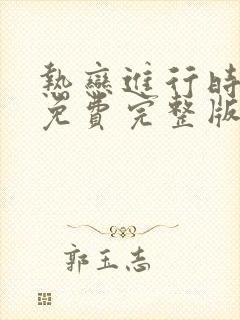 熱戀進行時
免費完整版
郭玉志